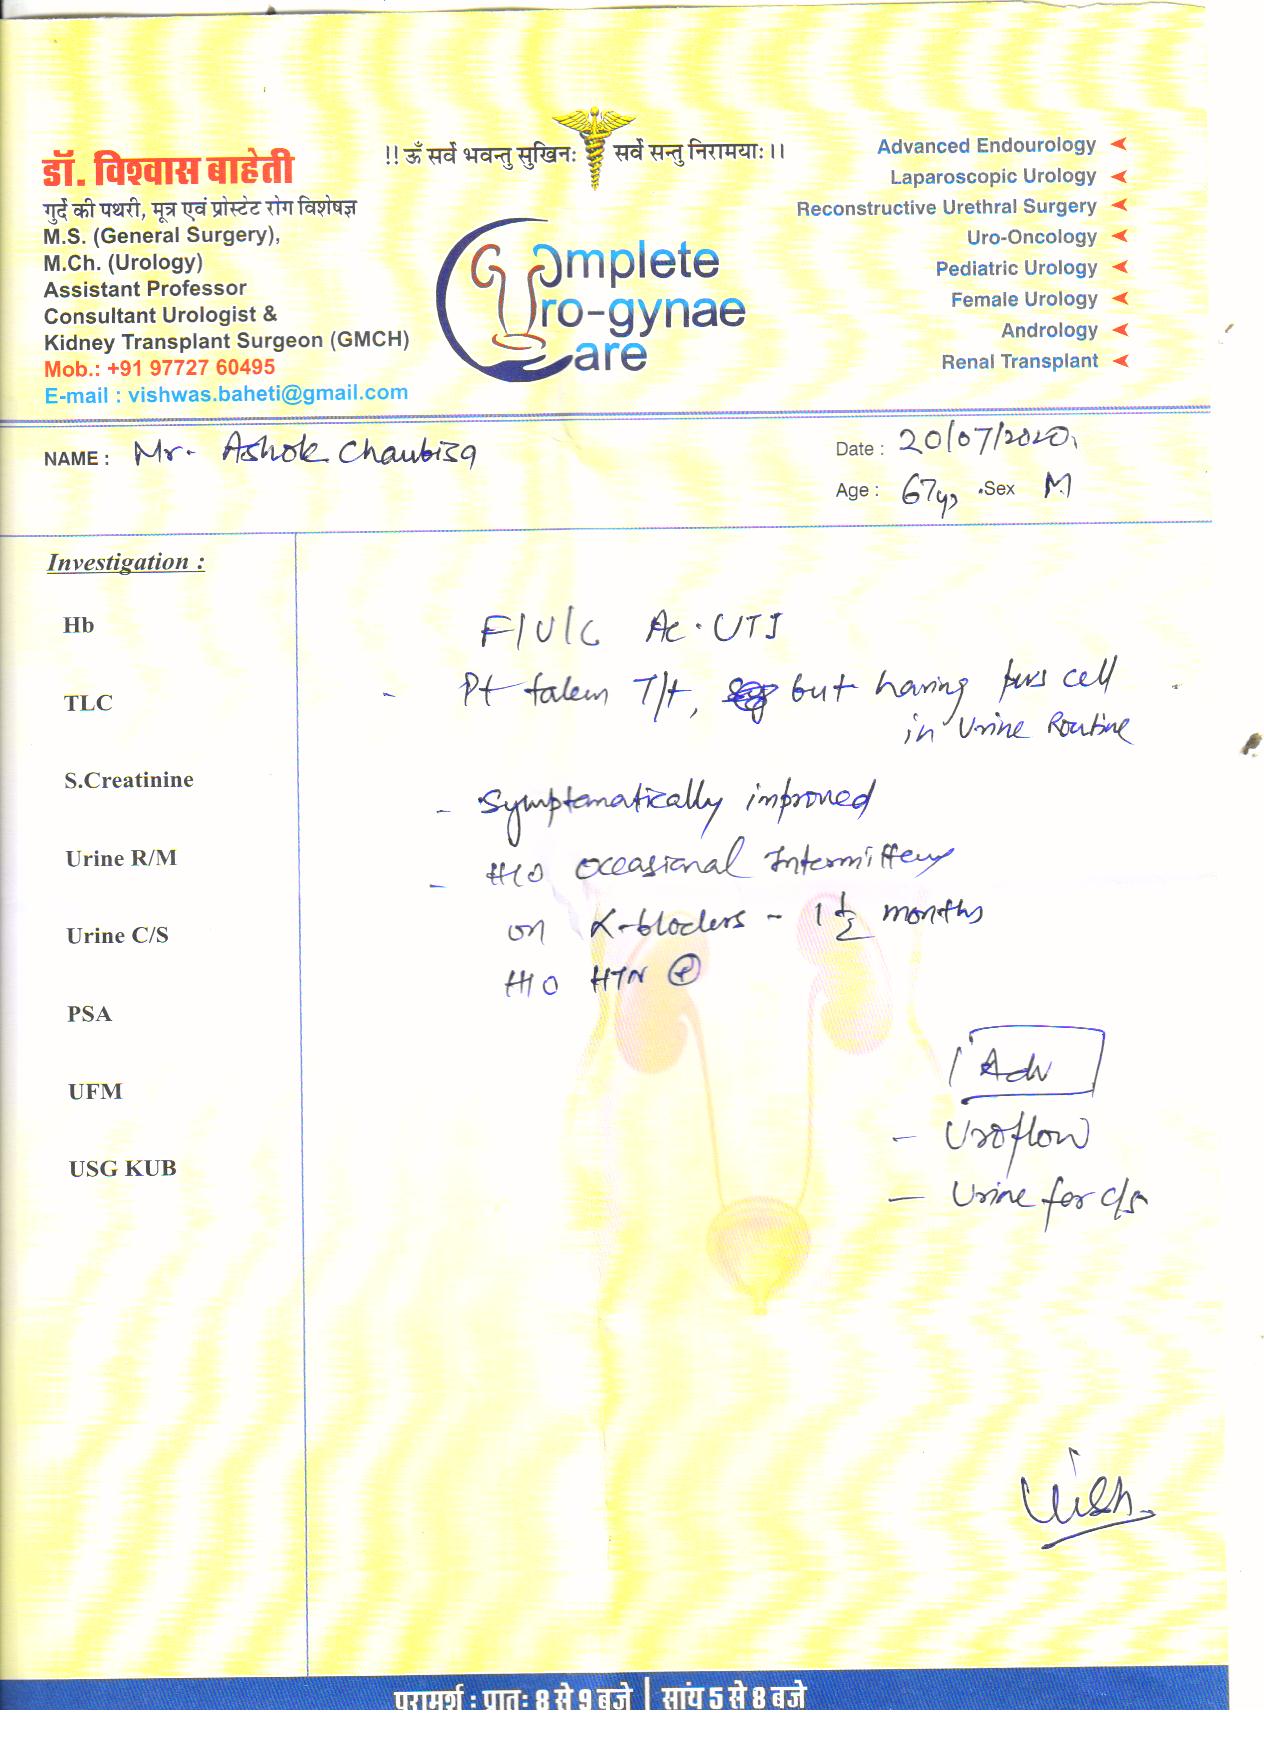 !! ॐ सर्वे भवन्तु सुखिनः सर्वे सन्तु निरामयाः ।।
डॉ. विश्वास बाहेती
गुर्दे की पथरी, मूत्र एवं प्रोस्टेट रोग विशेषज्ञ
M.S. (General Surgery),
M.Ch. (Urology)
Assistant Professor
Consultant Urologist &
Kidney Transplant Surgeon (GMCH)
Mob.: +91 97727 60495
E-mail : vishwas.baheti@gmail.com
Complete
Uro-gynae
Care
Advanced Endourology
Laparoscopic Urology
Reconstructive Urethral Surgery
Uro-Oncology
Pediatric Urology
Female Urology
Andrology
Renal Transplant
NAME : Mr. Ashok Chaubisa
Date : 20/07/2020
Age : 67 ys Sex M
Investigation :
Hb
TLC
S.Creatinine
Urine R/M
Urine C/S
PSA
UFM
USG KUB
F/U/C Ac. UTI
- Pt taken T/t, but having pus cell
in Urine Routine
- Symptomatically improved
- H/O Occasional Intermittency
on α-blockers - 1 ½ months
H/O HTN ⊕
Adv
- Uroflow
- Urine for c/s
Vish.
परामर्श : प्रातः 8 से 9 बजे | सांय 5 से 8 बजे